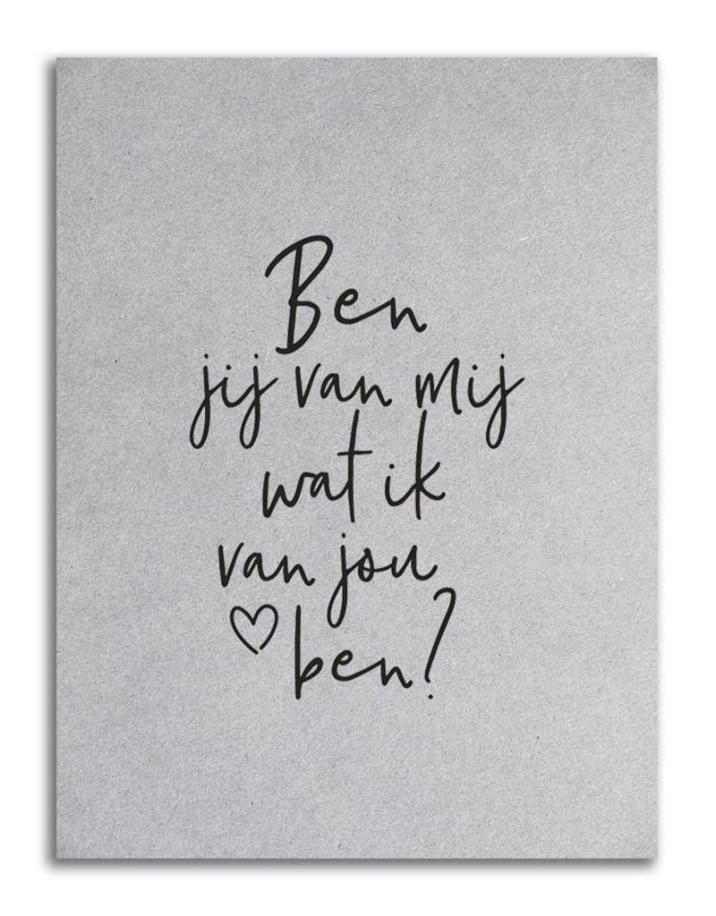 Ben
jij van mij
wat ik
van jou
ben?